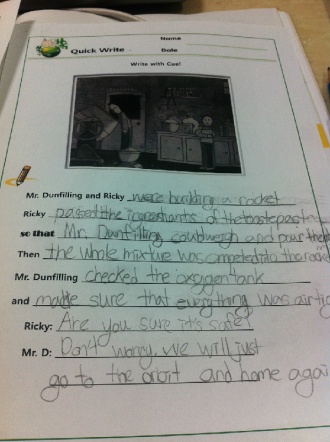 Name
Quick Write
Date
Write with Cue!
Mr. Dunfilling and Ricky were building a rocket
Ricky passed the of the
so that Mr. Dunfilling and pour
Then the whole mixture was to the
Mr. Dunfilling checked the oxygen tank
and make sure that everything was
Ricky: Are you sure it's safe?
Mr. D: Don't worry, we will just
go to the orbit and home again